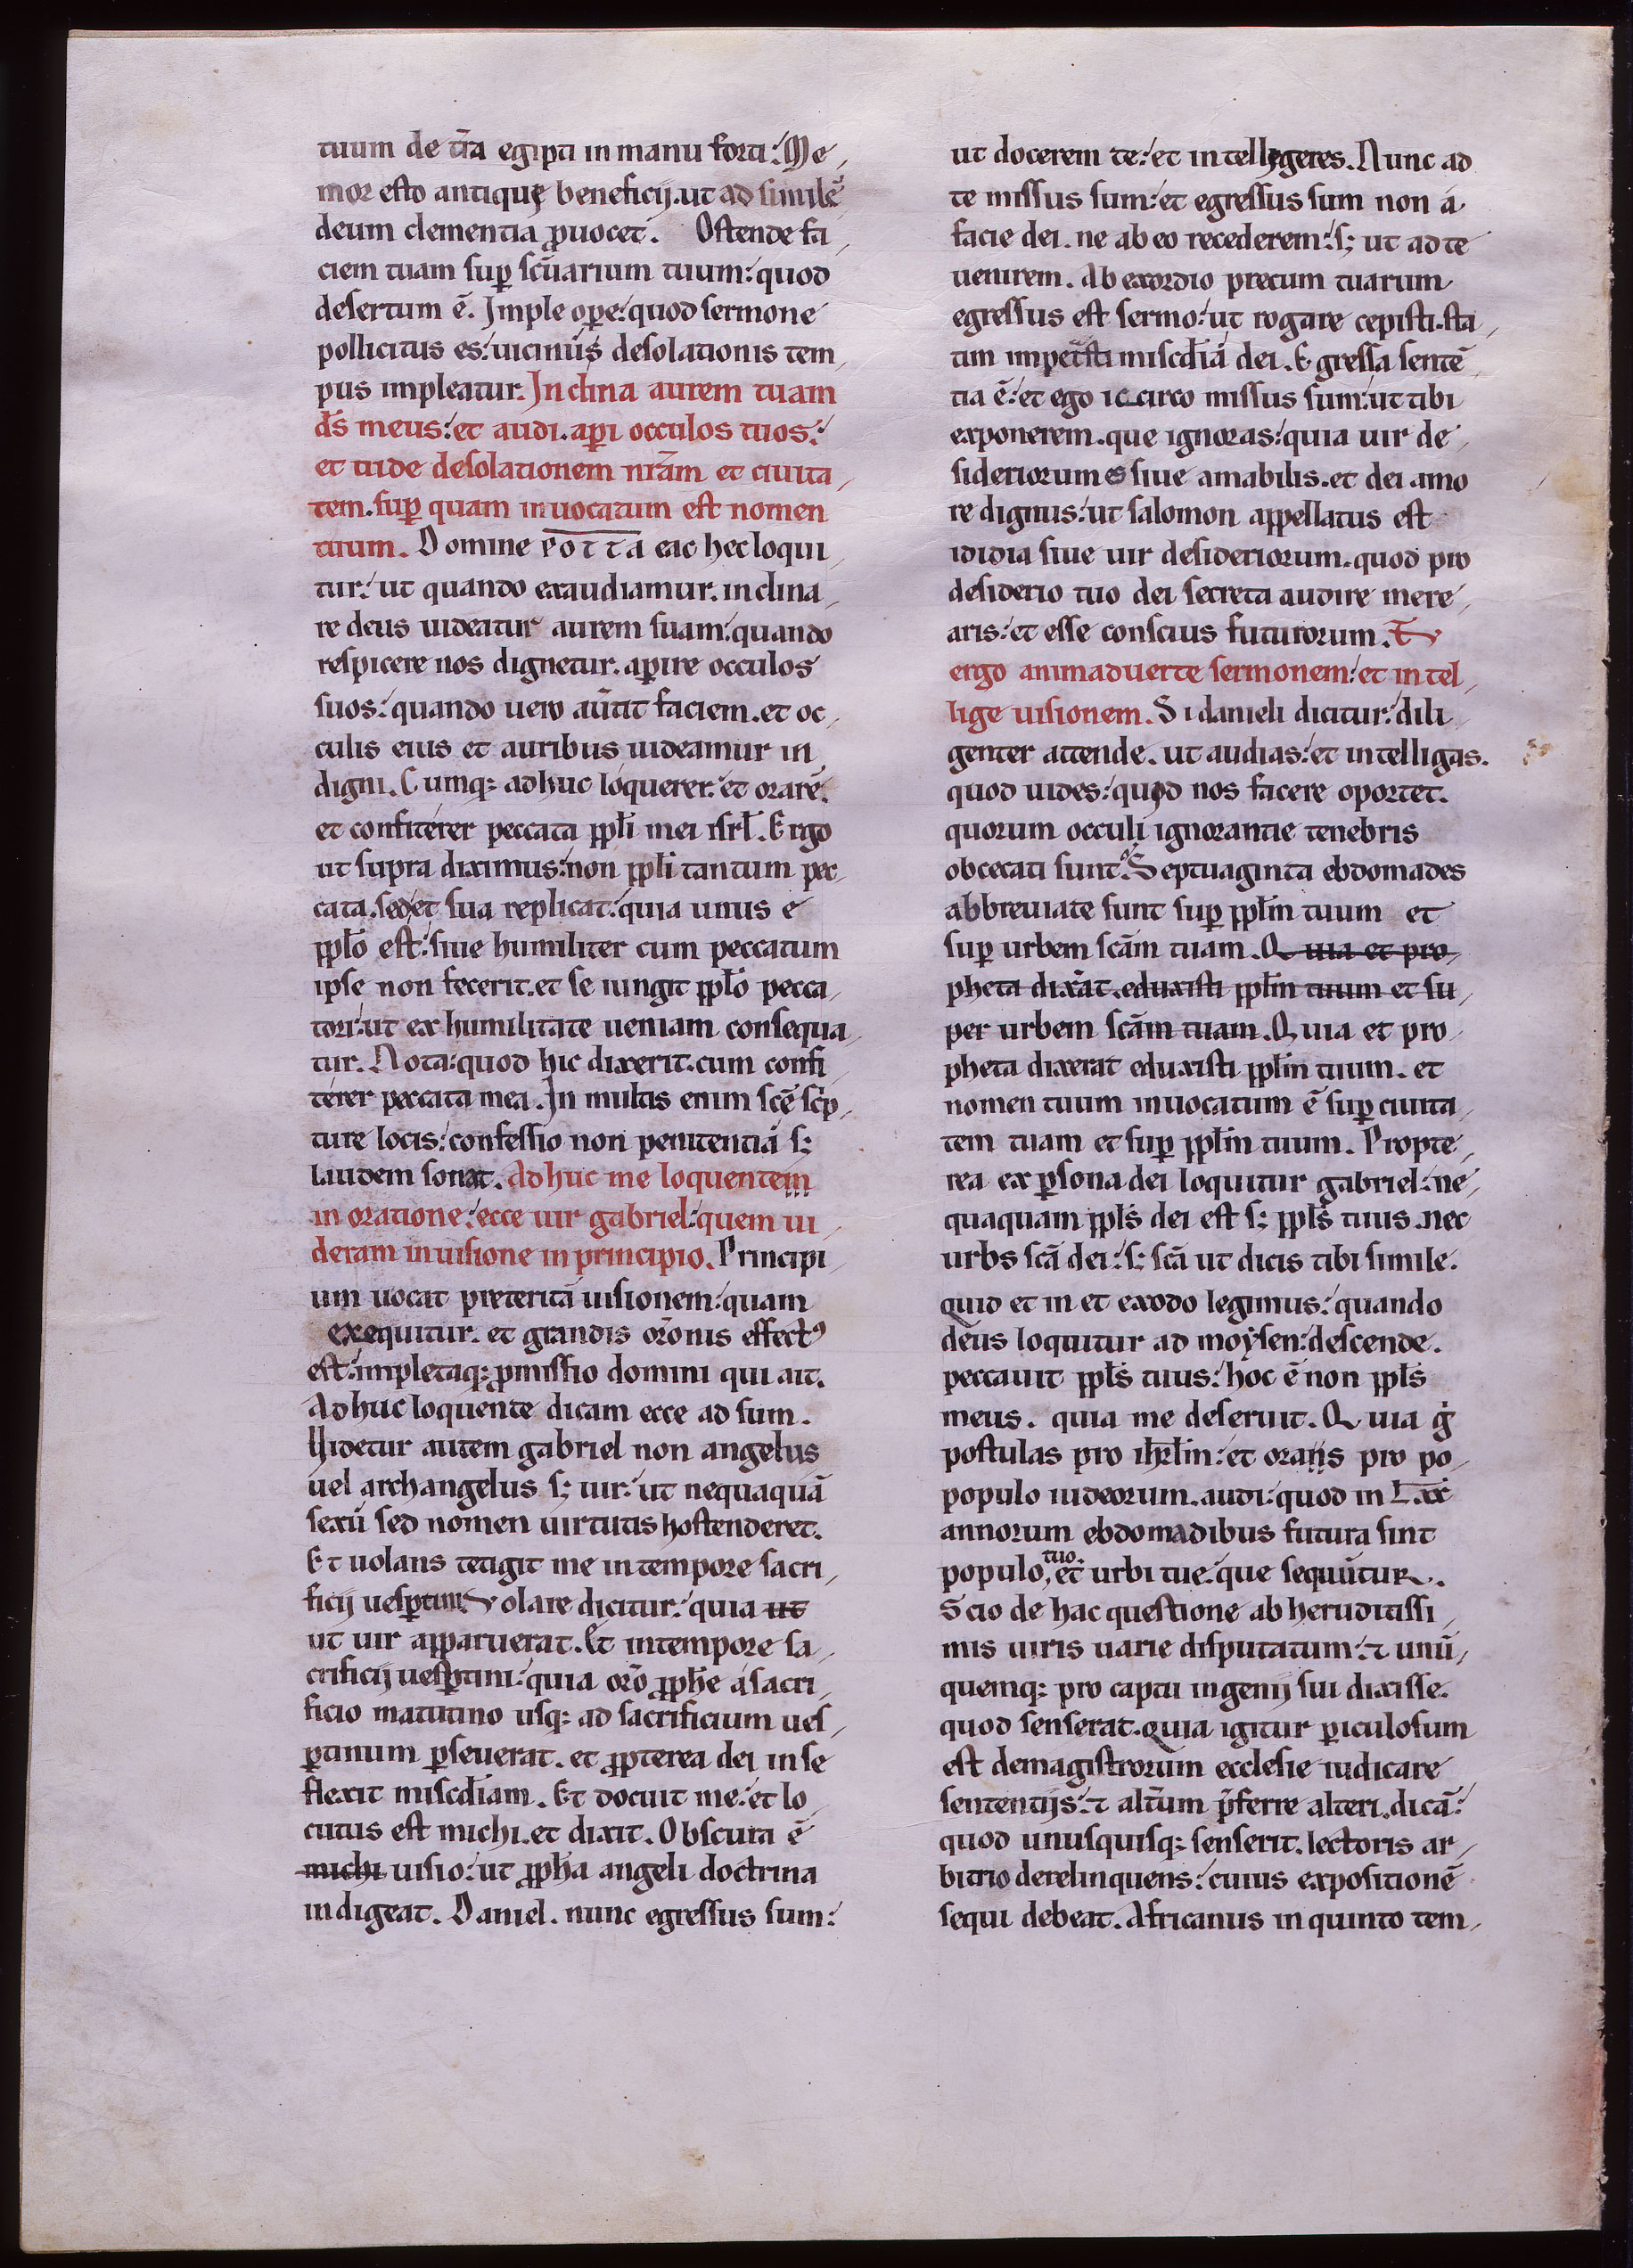 tuum de tr̄a egipti in manu forti: Me,
mor esto antiquę beneficij. ut ad similē
deum clementia ꝓuocet. Ostende fa,
ciem tuam suꝑ scūarium tuum: quod
desertum ē. Imple oꝑe: quod sermone
pollicitus es: uicinus desolationis tem,
pus impleatur. Inclina aurem tuam
d̄s meus: et audi. aꝑi occulos tuos:
et uide desolationem nr̄am et ciuita,
tem. suꝑ quam inuocatum est nomen
tuum. Domine
tur: ut quando exaudiamur. inclina,
re deus uideatur aurem suam: quando
respicere nos dignetur. aꝑire occulos
suos: quando uero aūtit faciem. et oc,
culis eius et auribus uideamur in,
digni. Cumq; adhuc loquerer: et orarē.
et confiterer peccata ppl̄i mei isrl̄. Ergo
ut supra diximus: non ppl̄i tantum pec,
cata. sed et sua replicat: quia unus e
ppl̄o est: siue humiliter cum peccatum
ipse non fecerit. et se iungit ppl̄o pecca,
tori: ut ex humilitate ueniam consequa,
tur. Nota: quod hic dixerit. cum confi,
terer peccata mea. In multis enim scē scp̄,
ture locis: confessio non penitentiā s;
laudem sonat. Adhuc me loquentem
in oratione: ecce uir gabriel: quem ui,
deram in uisione in principio. Principi,
um uocat preteritā uisionem: quam
exequitur. et grandis or̄onis effectꝰ
est: impletaq; ꝓmissio domini qui ait.
Adhuc loquente dicam ecce ad sum.
Uidetur autem gabriel non angelus
uel archangelus s; uir: ut nequaquā
sexū sed nomen uirtutis hostenderet.
Et uolans tetigit me in tempore sacri,
ficij uesꝑtini. Volare dicitur: quia ut
ut uir apparuerat. Et in tempore sa,
crificij uesꝑtini: quia orō ꝓph̄e a sacri,
ficio matutino usq; ad sacrificium ues,
ꝑtinum ꝑseuerat. et ꝓpterea dei in se
flexit miscd̄iam. Et docuit me: et lo,
cutus est michi. et dixit. Obscura ē
michi uisio: ut ꝓph̄a angeli doctrina
indigeat. Daniel. nunc egressus sum:
ut docerem te: et intelligeres. Nunc ad
te missus sum: et egressus sum non a
facie dei. ne ab eo recederem: s; ut ad te
uenirem. Ab exordio precum tuarum
egressus est sermo: ut rogare cepisti. sta,
tim impet̄sti miscd̄iā dei. Egressa sentē,
tia ē: et ego iccirco missus sum: ut tibi
exponerem. que ignoras: quia uir de,
sideriorum es siue amabilis. et dei amo
re dignus: ut salomon appellatus est
ididia siue uir desideriorum. quod pro
desiderio tuo dei secreta audire mere,
aris: et esse conscius futurorum. Tu
ergo animaduerte sermonem: et intel,
lige uisionem. Si danieli dicitur: dili,
genter attende. ut audias: et intelligas.
quod uides: quid nos facere oportet.
quorum occuli ignorantie tenebris
obcecati sunt. Septuaginta ebdomades
abbreuiate sunt suꝑ ppl̄m tuum et
suꝑ urbem scām tuam. Quia et pro,
pheta dixāt. eduxisti ppl̄m tuum et su,
per urbem scām tuam. Quia et pro,
pheta dixerat eduxisti ppl̄m tuum. et
nomen tuum inuocatum ē suꝑ ciuita,
tem tuam et suꝑ ppl̄m tuum. Propte,
rea ex ꝑsona dei loquitur gabriel: ne,
quaquam ppl̄s dei est s; ppl̄s tuus. nec
urbs scā dei: s; scā ut dicis tibi simile.
quid et in et exodo legimus: quando
deus loquitur ad moysen: descende.
peccauit ppl̄s tuus: hoc ē non ppl̄s
meus. quia me deseruit. Quia ġ
postulas pro ihrl̄m: et orans pro po,
populo iudeorum. audi: quod in L.xx
annorum ebdomadibus futura sint
populo, tuo. et urbi tue: que sequūtur.
Scio de hac questione ab heruditissi,
mis uiris uarie disputatum: ⁊ unū,
quemq; pro captu ingenij sui dixisse.
quod senserat. quia igitur ꝑiculosum
est demagistrorum ecclesie iudicare
sententijs: ⁊ alt̄um p̄ferre alteri. dicā:
quod unusquisq; senserit. lectoris ar,
bitrio derelinquens: cuius expositionē
sequi debeat. Africanus in quinto tem,